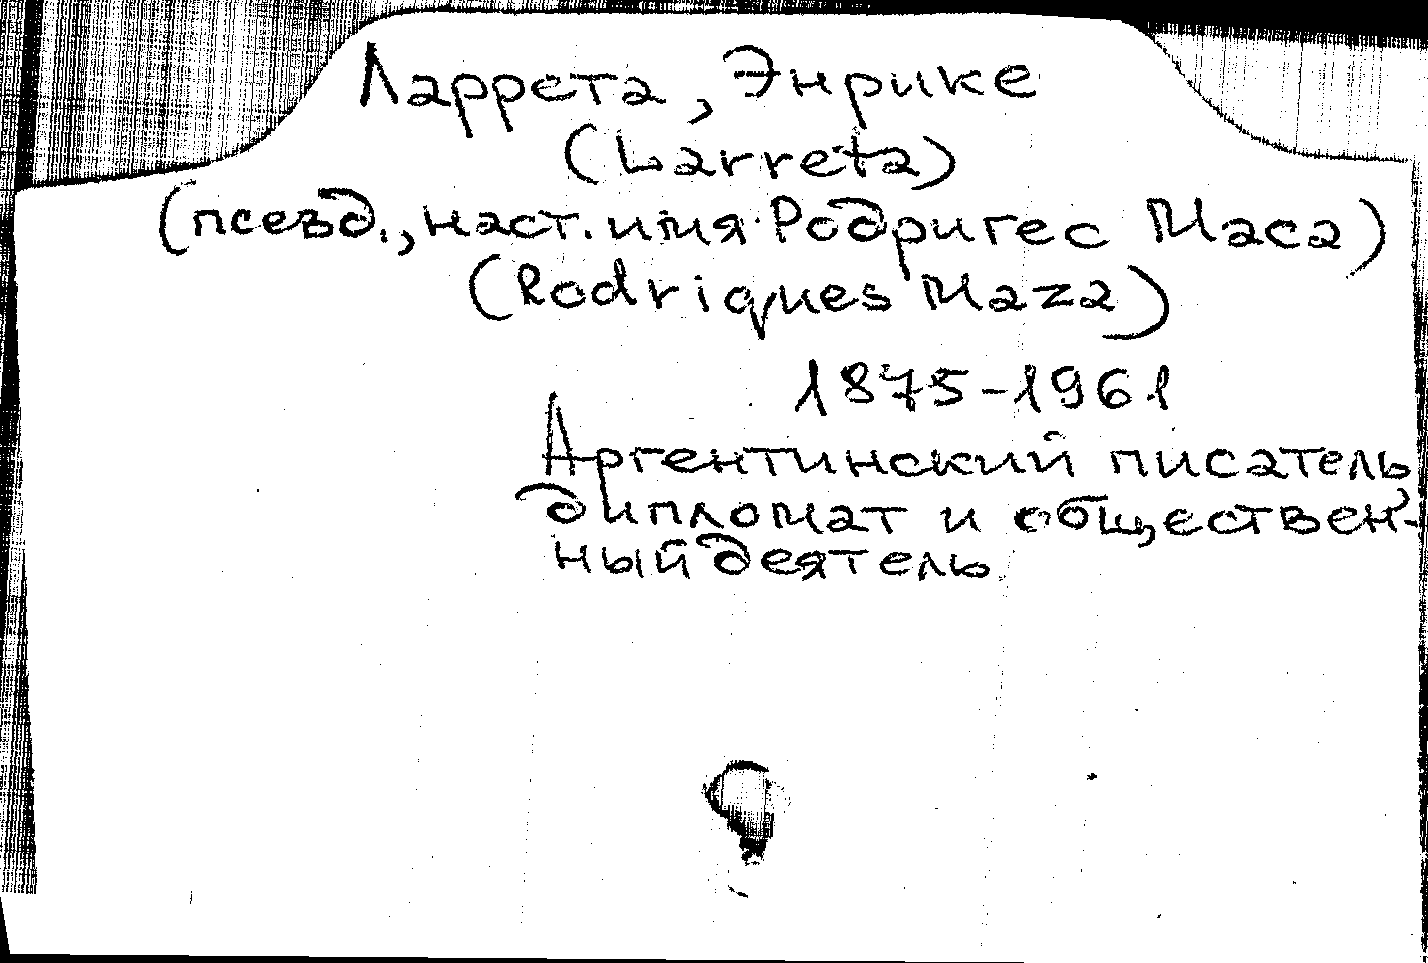 Ларрета, Энрике
(Larreta)
(псевд., наст. имя Родригес Маса)
(Rodriques Maza)
1875-1961
Аргентинский писатель,
дипломат и обществен-
ный деятель